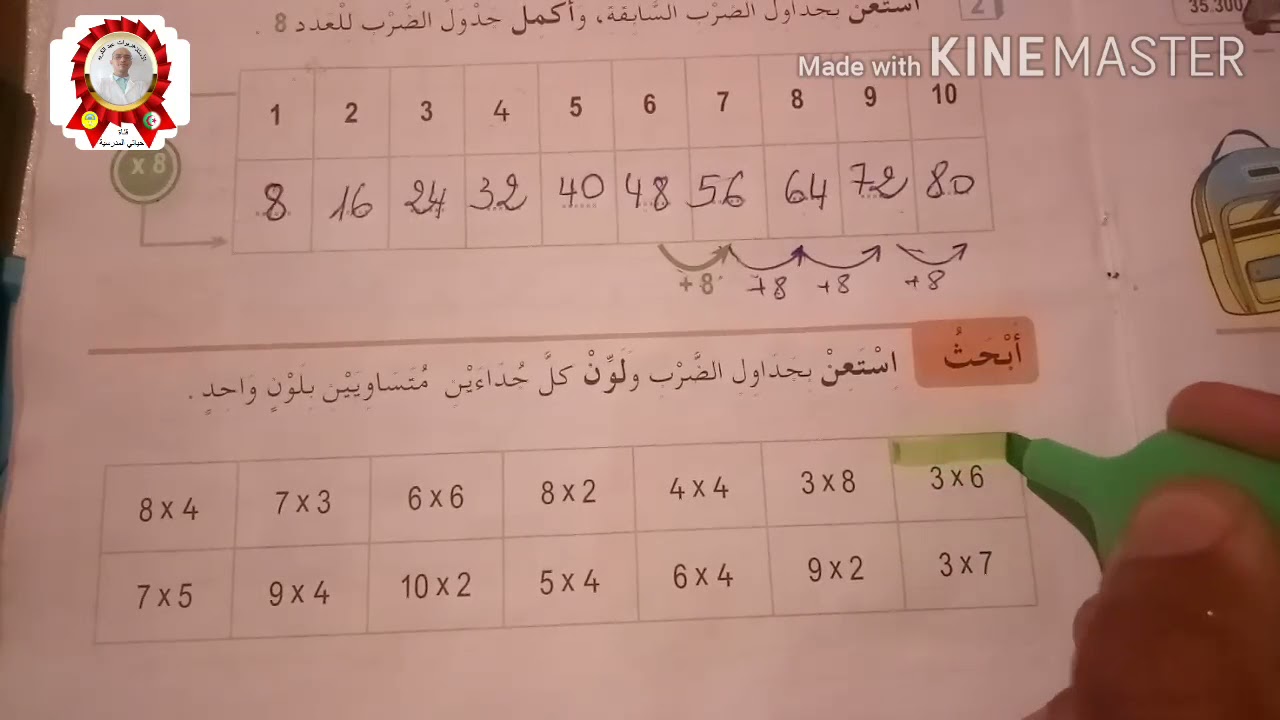 35.300
2 اسْتَعِنْ بِجَدَاوِلِ الضَّرْبِ السَّابِقَةِ، وَأَكْمِلْ جَدْوَلَ الضَّرْبِ لِلْعَدَدِ 8 .
Made with KINEMASTER
قناة
حياتي المدرسية
1 2 3 4 5 6 7 8 9 10
x 8
8 16 24 32 40 48 56 64 72 80
+8 +8 +8 +8
أَبْحَثُ
اِسْتَعِنْ بِجَدَاوِلِ الضَّرْبِ وَلَوِّنْ كلَّ جُدَاءَيْنِ مُتَسَاوِيَيْنِ بِلَوْنٍ وَاحِدٍ .
8 x 4 7 x 3 6 x 6 8 x 2 4 x 4 3 x 8 3 x 6
7 x 5 9 x 4 10 x 2 5 x 4 6 x 4 9 x 2 3 x 7